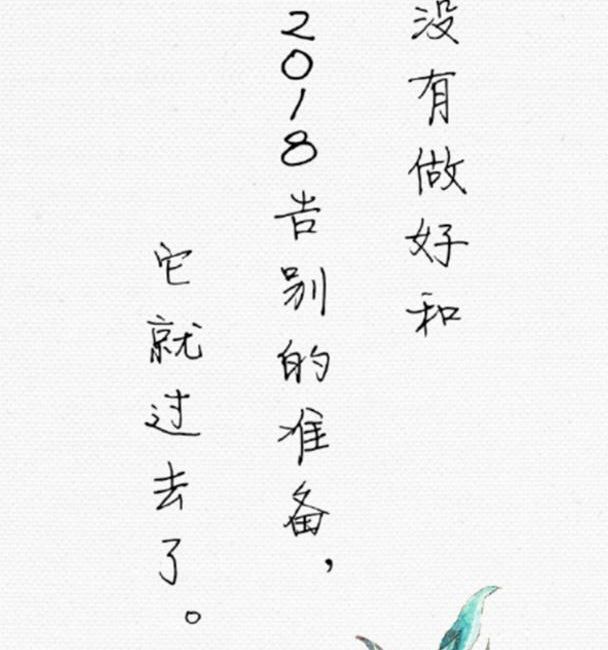 没有做好和
2018告别的准备，
它就过去了。